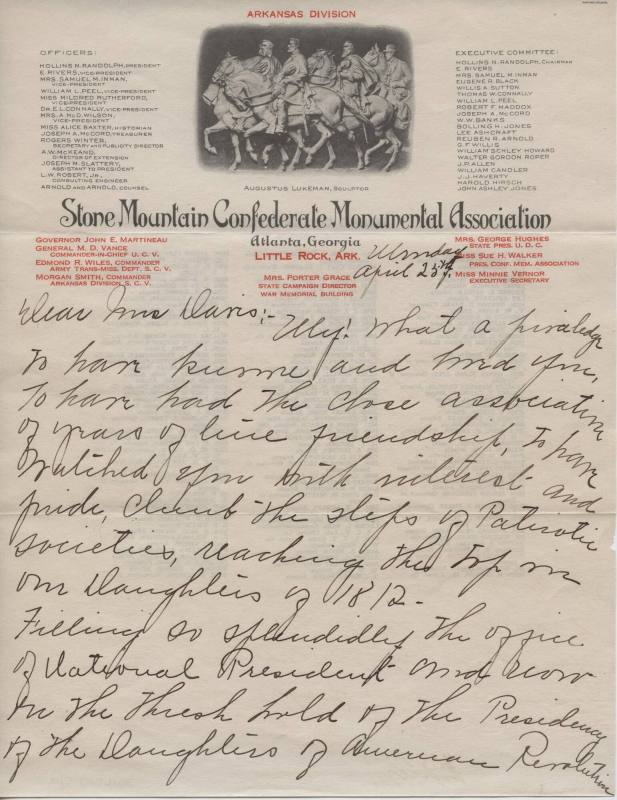 ARKANSAS DIVISION
OFFICERS:
HOLLINS N. RANDOLPH, PRESIDENT
E. RIVERS, VICE-PRESIDENT
MRS. SAMUEL M. INMAN,
VICE-PRESIDENT
WILLIAM L. PEEL, VICE-PRESIDENT
MISS MILDRED RUTHERFORD,
VICE-PRESIDENT
DR. E. L. CONNALLY, VICE-PRESIDENT
MRS. A. McD. WILSON,
VICE-PRESIDENT
MISS ALICE BAXTER, HISTORIAN
JOSEPH A. McCORD, TREASURER
ROGERS WINTER,
SECRETARY AND PUBLICITY DIRECTOR
A. W. McKEAND,
DIRECTOR OF EXTENSION
JOSEPH M. SLATTERY,
ASSISTANT TO PRESIDENT
L. W. ROBERT, JR.,
CONSULTING ENGINEER
ARNOLD AND ARNOLD, COUNSEL
EXECUTIVE COMMITTEE:
HOLLINS N. RANDOLPH, CHAIRMAN
E. RIVERS
MRS. SAMUEL M. INMAN
EUGENE R. BLACK
WILLIS A. SUTTON
THOMAS W. CONNALLY
WILLIAM L. PEEL
ROBERT F. MADDOX
JOSEPH A. McCORD
W. W. BANKS
BOLLING H. JONES
LEE ASHCRAFT
REUBEN R. ARNOLD
G. F. WILLIS
WILLIAM SCHLEY HOWARD
WALTER GORDON ROPER
J. P. ALLEN
WILLIAM CANDLER
J. J. HAVERTY
HAROLD HIRSCH
JOHN ASHLEY JONES
AUGUSTUS LUKEMAN, SCULPTOR
Stone Mountain Confederate Monumental Association
Atlanta, Georgia
LITTLE ROCK, ARK.
GOVERNOR JOHN E. MARTINEAU
GENERAL M. D. VANCE
COMMANDER-IN-CHIEF U. C. V.
EDMOND R. WILES, COMMANDER
ARMY TRANS-MISS. DEPT. S. C. V.
MORGAN SMITH, COMMANDER
ARKANSAS DIVISION, S. C. V.
MRS. PORTER GRACE
STATE CAMPAIGN DIRECTOR
WAR MEMORIAL BUILDING
MRS. GEORGE HUGHES
STATE PRES. U. D. C.
MISS SUE H. WALKER
PRES. CONF. MEM. ASSOCIATION
MISS MINNIE VERNOR
EXECUTIVE SECRETARY
Monday
April 25th
Dear Mrs Davis:-
My! What a priviledge
to have known and loved you,
To have had the close association
of years of fine friendship, to have
Watched you with interest and
pride, climb the steps of Patriotic
societies, reaching the top in
our Daughters of 1812-
Filling so splendidly the office
of National President and now
on the thresh hold of the Presidency
of the Daughters of American Revolution